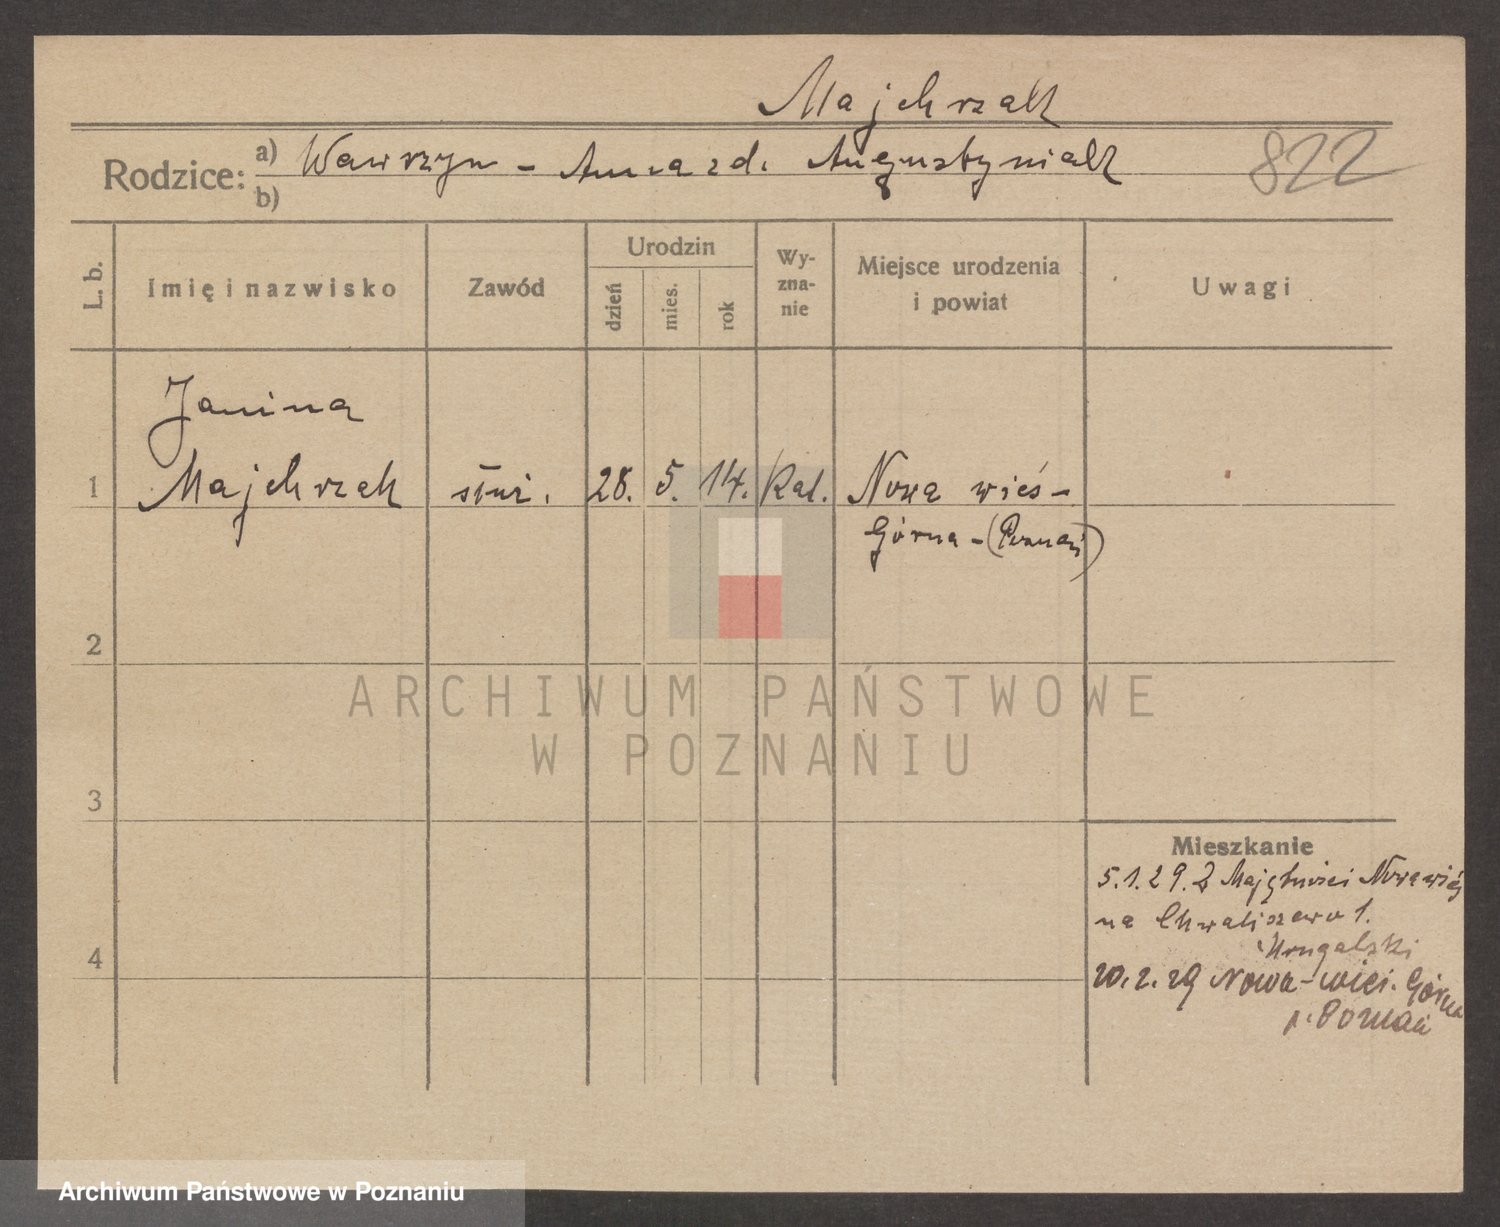 Majchrzak
Rodzice: a) Wawrzyn - Anna zd. Augustyniak
b)
822
L. b.
Imię i nazwisko
Zawód
Urodzin
dzień
mies.
rok
Wy-
zna-
nie
Miejsce urodzenia
i powiat
Uwagi
Janina
1 Majchrzak służ. 28. 5. 14. Kat. Nowa wieś -
Górna - (Poznań)
2
3
4
Mieszkanie
5.1.29. Z Majętności Nowawieś
na Chwaliszewo 1.
20.2.29 Nowa-wieś. Górna
p. Poznań
ARCHIWUM PAŃSTWOWE
W POZNANIU
Archiwum Państwowe w Poznaniu